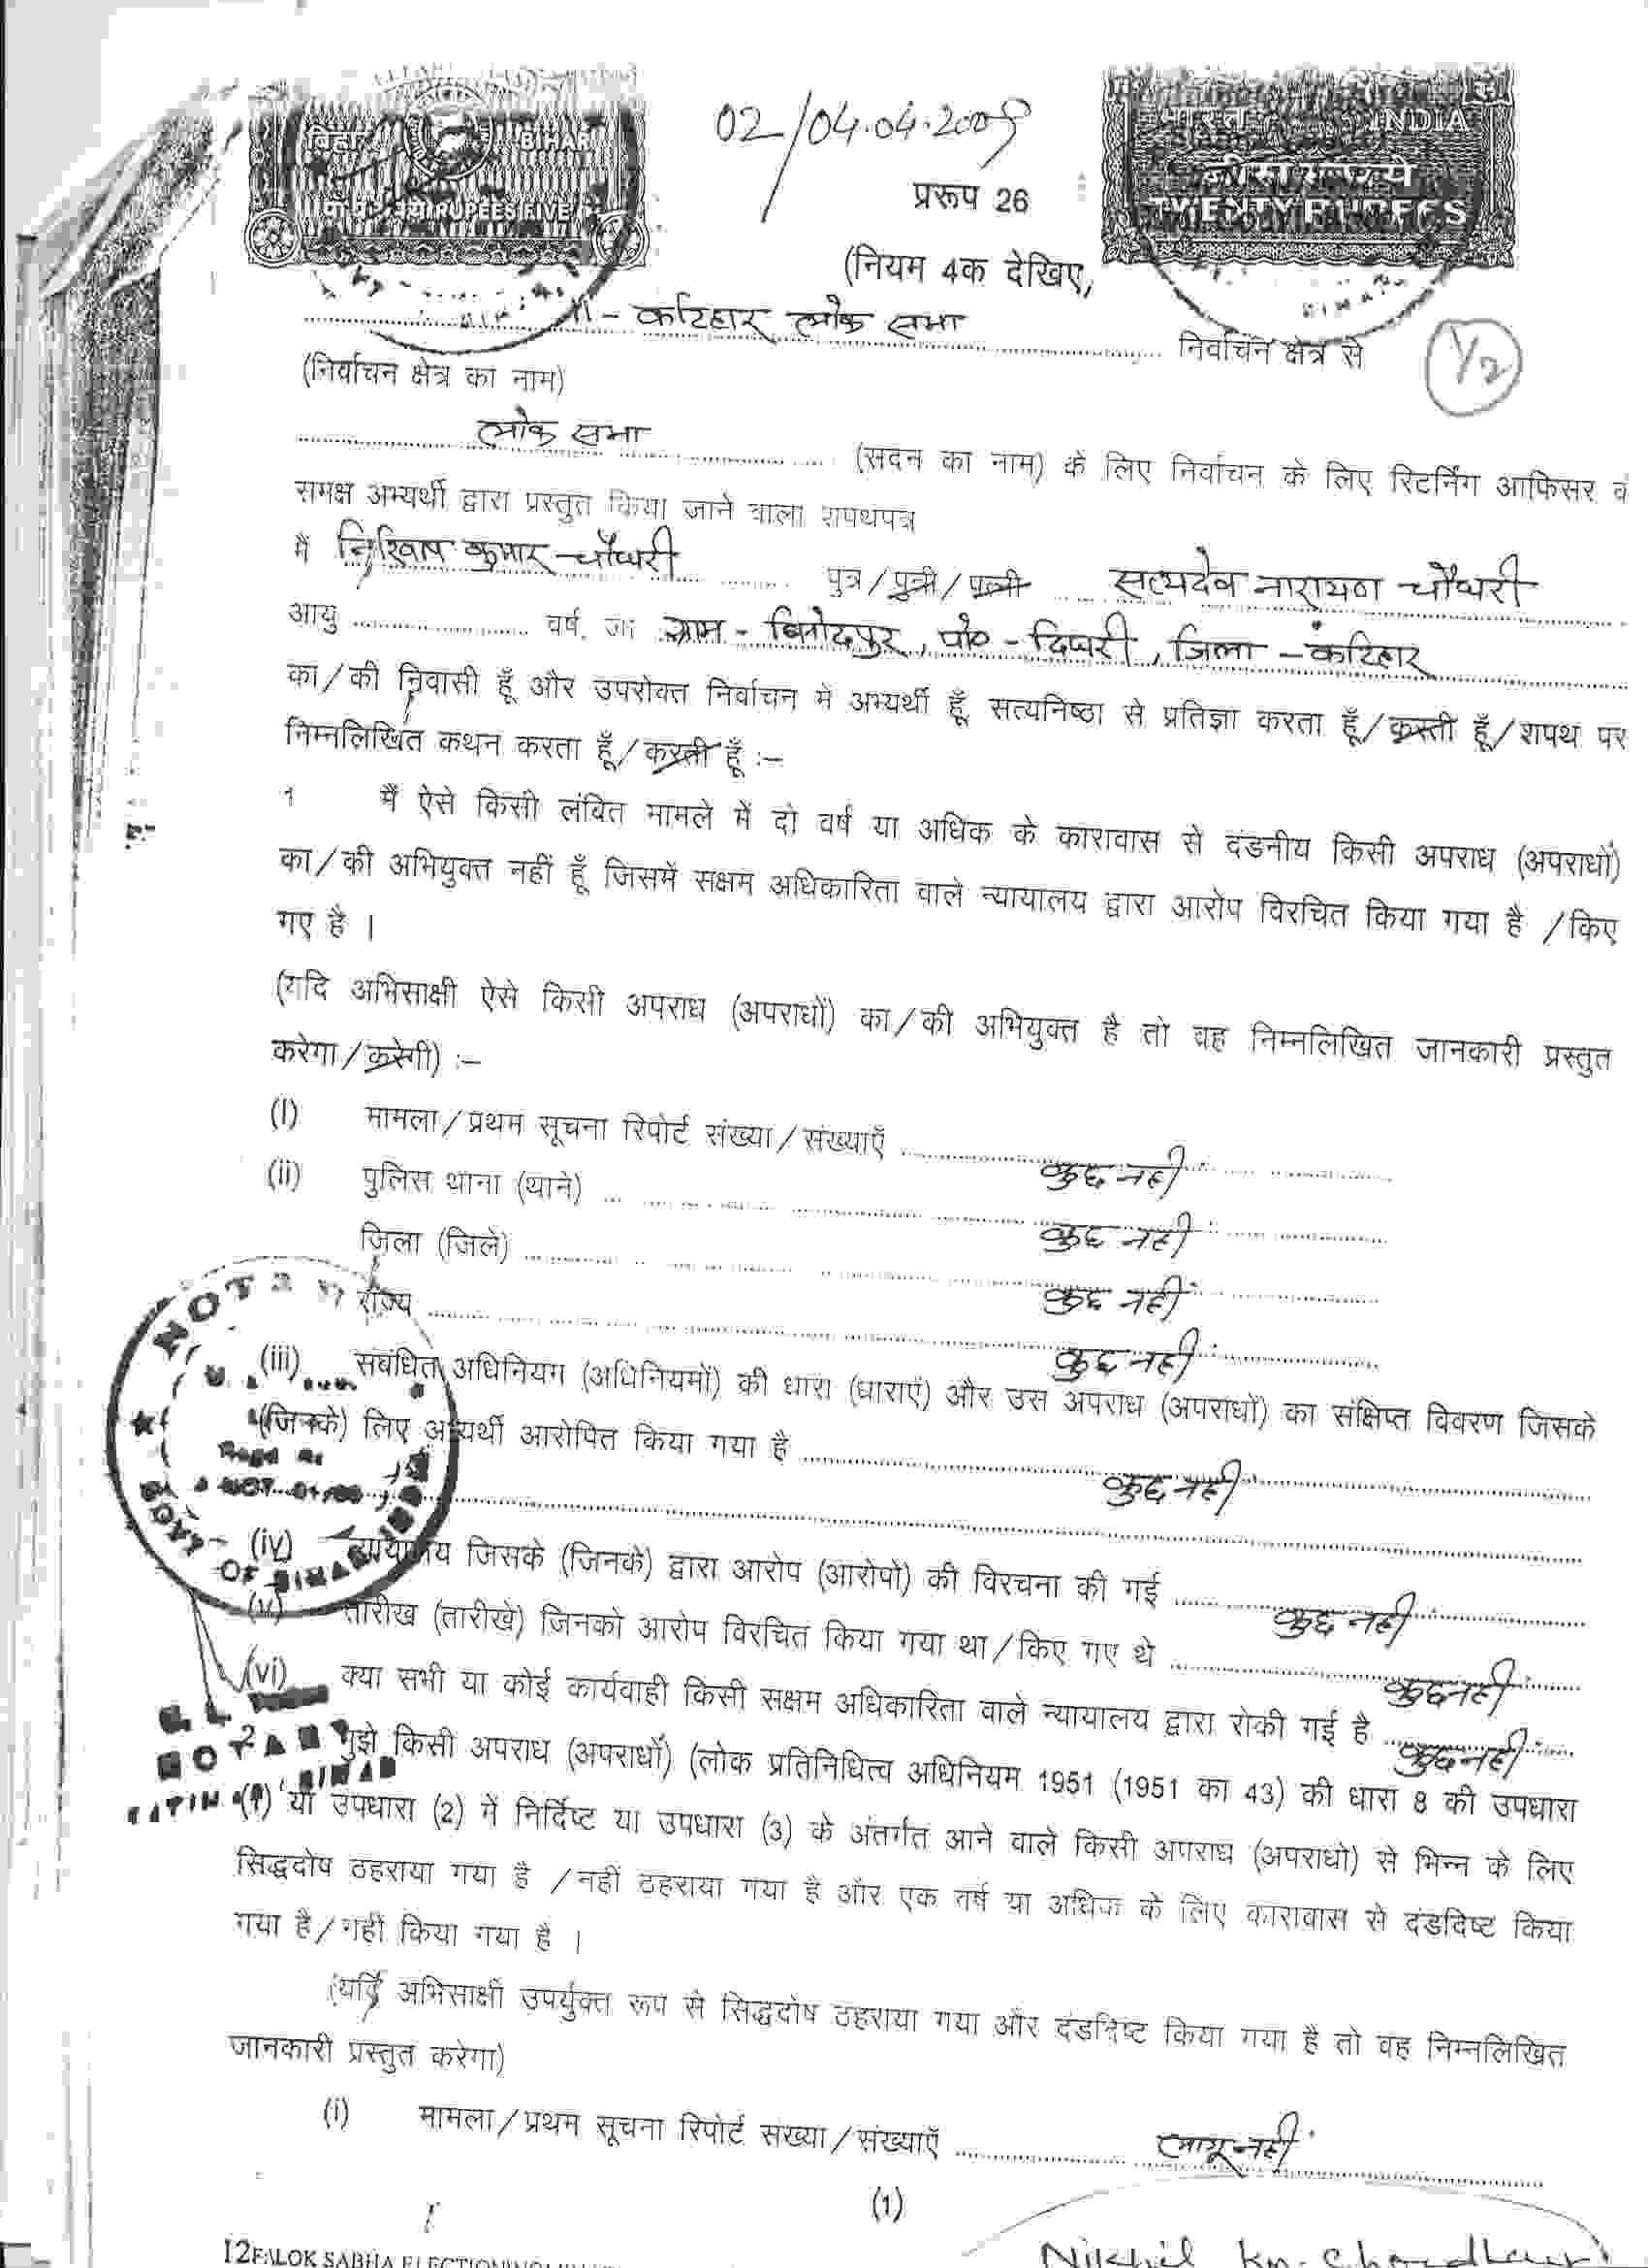 बिहार BIHAR
RUPEES FIVE
02/04.04.2009
भारत INDIA
बीस रुपये
TWENTY RUPEES
प्ररूप 26
(नियम 4क देखिए,
11 - कटिहार लोक सभा निर्वाचन क्षेत्र से
1/2
(निर्वाचन क्षेत्र का नाम)
लोक सभा (सदन का नाम) के लिए निर्वाचन के लिए रिटर्निंग आफिसर
समक्ष अभ्यर्थी द्वारा प्रस्तुत किया जाने वाला शपथपत्र
मैं निखिल कुमार चौधरी पुत्र/पुत्री/पत्नी सत्यदेव नारायण चौधरी
आयु वर्ष, जो ग्राम - बिनोदपुर, पो० - दिघरी, जिला - कटिहार
का/की निवासी हूँ और उपरोक्त निर्वाचन में अभ्यर्थी हूँ सत्यनिष्ठा से प्रतिज्ञा करता हूँ/करती हूँ/शपथ पर
निम्नलिखित कथन करता हूँ/करती हूँ :–
1 मैं ऐसे किसी लंबित मामले में दो वर्ष या अधिक के कारावास से दंडनीय किसी अपराध (अपराधों)
का/की अभियुक्त नहीं हूँ जिसमें सक्षम अधिकारिता वाले न्यायालय द्वारा आरोप विरचित किया गया है /किए
गए है ।
(यदि अभिसाक्षी ऐसे किसी अपराध (अपराधों) का/की अभियुक्त है तो वह निम्नलिखित जानकारी प्रस्तुत
करेगा/करेगी) :–
(i) मामला/प्रथम सूचना रिपोर्ट संख्या/संख्याएँ कुछ नहीं
(ii) पुलिस थाना (थाने) कुछ नहीं
जिला (जिले) कुछ नहीं
राज्य कुछ नहीं
(iii) संबंधित अधिनियम (अधिनियमों) की धारा (धाराएं) और उस अपराध (अपराधों) का संक्षिप्त विवरण जिसके
(जिनके) लिए अभ्यर्थी आरोपित किया गया है कुछ नहीं
(iv) न्यायालय जिसके (जिनके) द्वारा आरोप (आरोपो) की विरचना की गई कुछ नहीं
(v) तारीख (तारीखे) जिनको आरोप विरचित किया गया था/किए गए थे कुछ नहीं
(vi) क्या सभी या कोई कार्यवाही किसी सक्षम अधिकारिता वाले न्यायालय द्वारा रोकी गई है कुछ नहीं
2 मुझे किसी अपराध (अपराधों) (लोक प्रतिनिधित्व अधिनियम 1951 (1951 का 43) की धारा 8 की उपधारा
(1) या उपधारा (2) में निर्दिष्ट या उपधारा (3) के अंतर्गत आने वाले किसी अपराध (अपराधो) से भिन्न के लिए
सिद्धदोष ठहराया गया है /नहीं ठहराया गया है और एक वर्ष या अधिक के लिए कारावास से दंडदिष्ट किया
गया है/नहीं किया गया है ।
(यदि अभिसाक्षी उपर्युक्त रूप से सिद्धदोष ठहराया गया और दंडदिष्ट किया गया है तो वह निम्नलिखित
जानकारी प्रस्तुत करेगा)
(i) मामला/प्रथम सूचना रिपोर्ट संख्या/संख्याएँ लागू नहीं
(1)
Nikhil Km. Choudhary